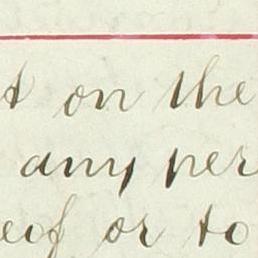 t on the
any per
eof or to